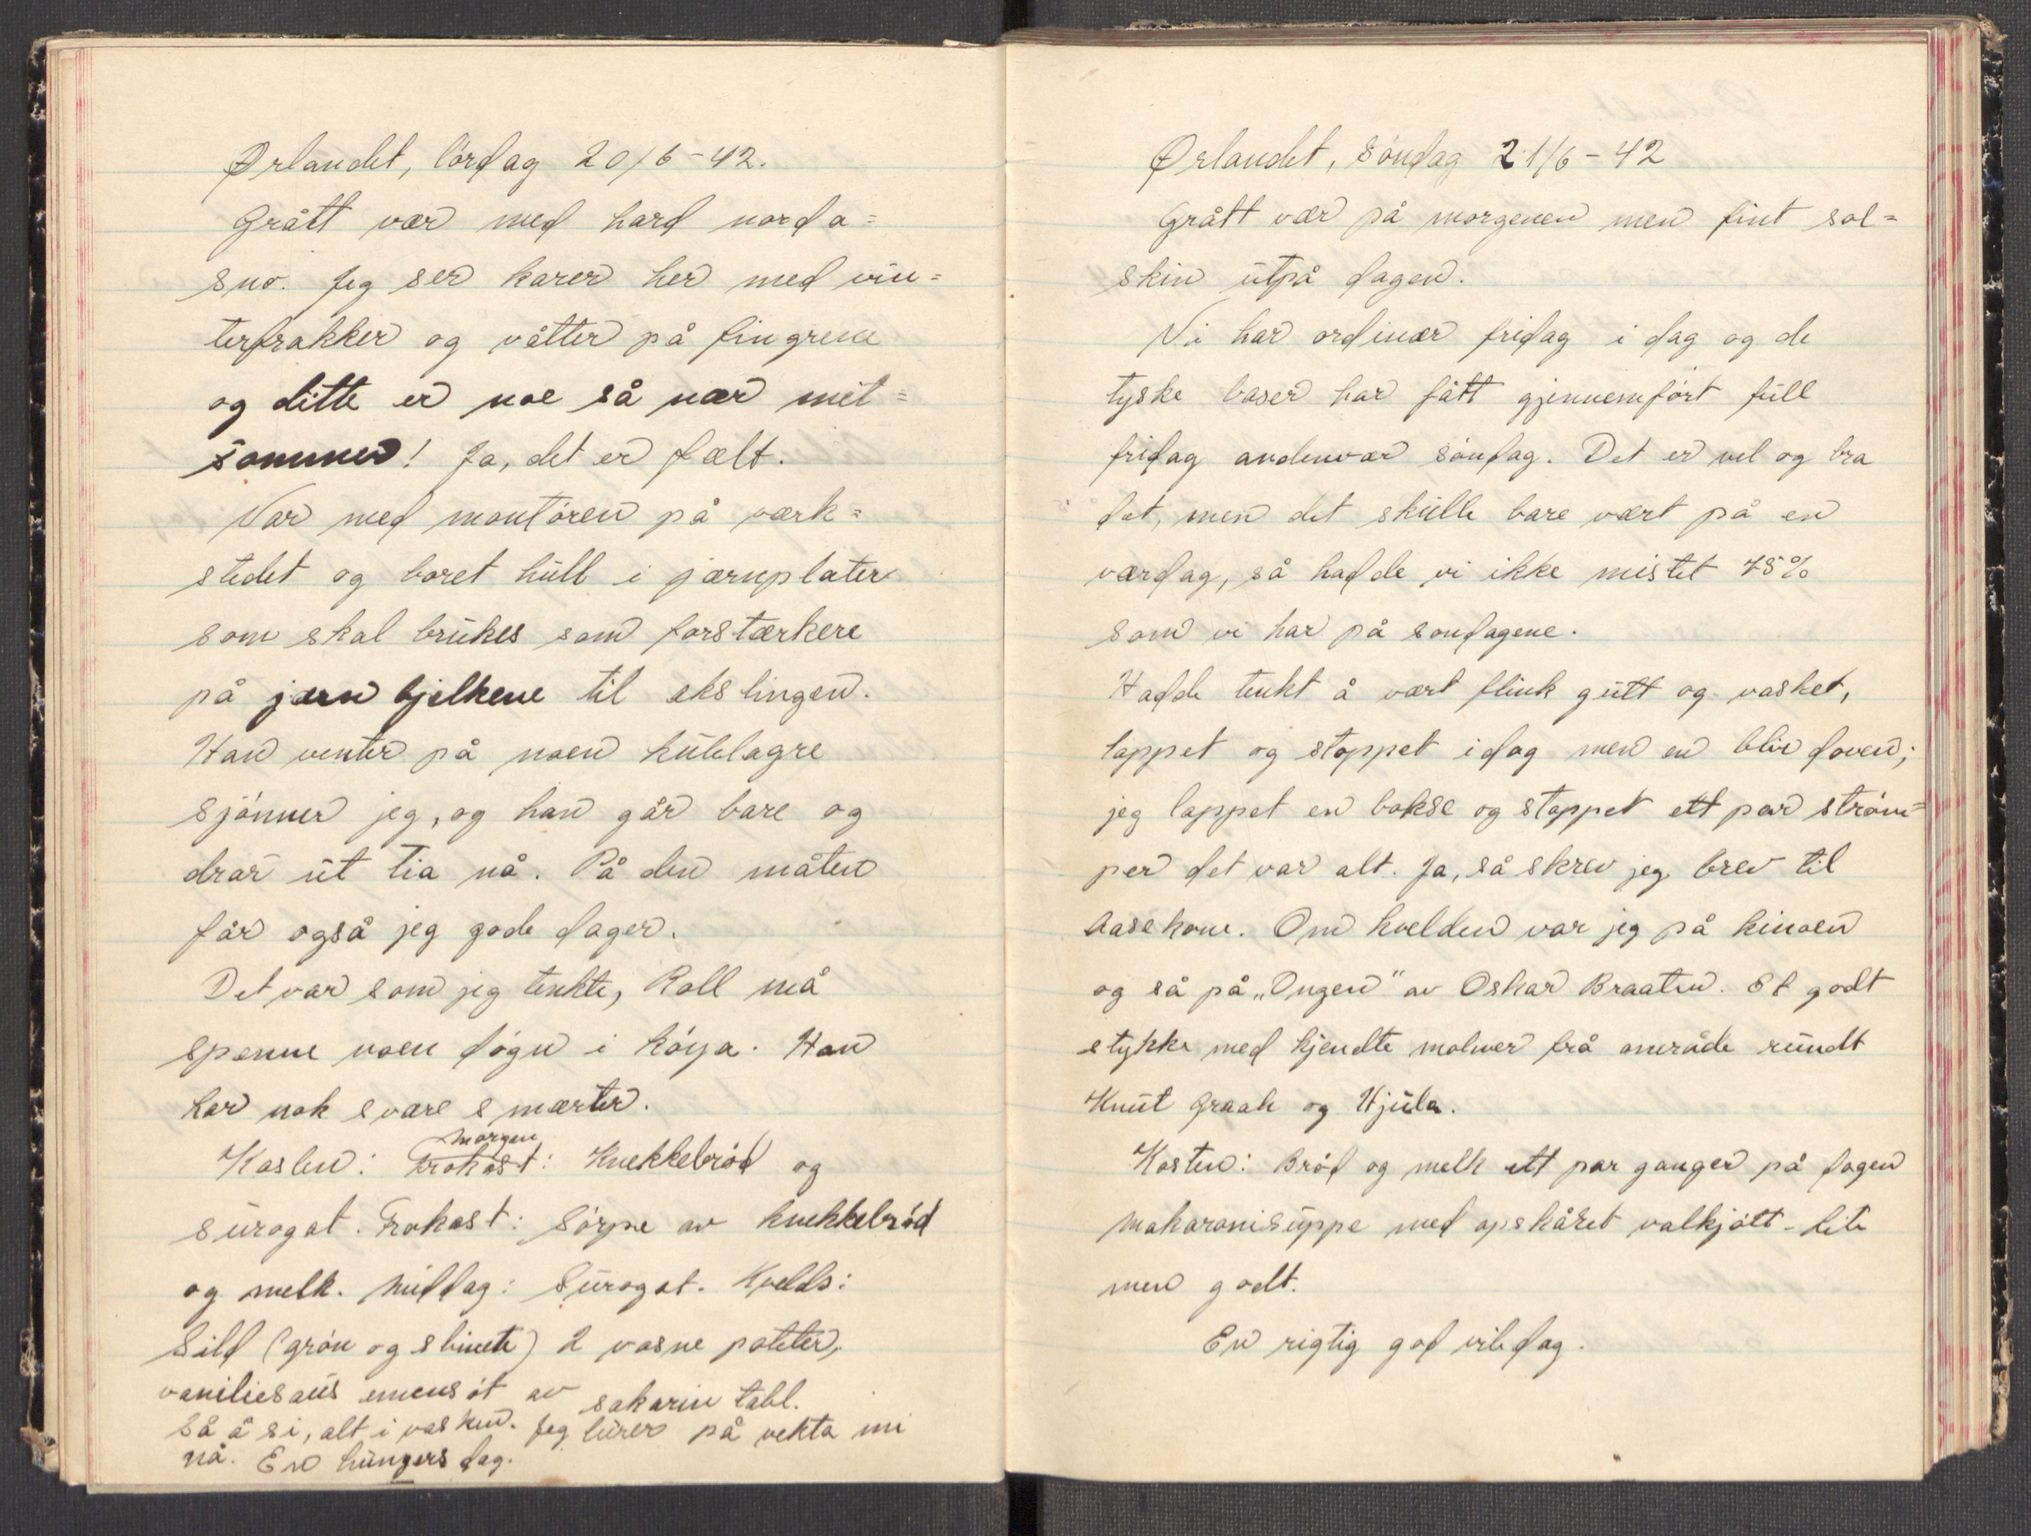 Ørlandet, lördag 20/6-42.
Grått vær med hard norda=
sno. Jeg ser karer her med vin=
terfrakker og våtter på fingrene
og dette er noe så nær mit=
sommer! Ja, det er fælt.
Var med montören på værk=
stedet og boret hull i jærnplater
som skal brukes som forstærkere
på jærn bjelkene til akslingen.
Han venter på noen kulelagre
sjönner jeg, og han går bare og
drar ut tia nå. På den måten
får også jeg gode dager.
Det var som jeg tenkte, Roll må
spenne noen dögn i köya. Han
har nok svære smærter.
morgen
Kosten: Frokost: Knekkebröd og
surogat. Frokost: Sörpe av knekkebröd
og melk. Middag: Surogat. Kvelds:
Sild (grön og slimete) 2 vasne poteter,
vaniliesaus emensöt av sakarin tabl.
Så å si, alt i vasken. Jeg lurer på vekta mi
nå. En hungersdag.
Ørlandet, Söndag 21/6-42
Grått vær på morgenen men fint sol=
skin utpå dagen.
Vi har ordinær fridag i dag og de
tyske baser har fått gjennemfört full
fridag andenvær söndag. Det er vel og bra
det, men det skulle bare vært på en
værdag, så hadde vi ikke mistet 75%
som vi har på söndagene.
Hadde tenkt å vært flink gutt og vasket,
lappet og stoppet idag men en blir doven;
jeg lappet en bokse og stoppet ett par ström=
per det var alt. Ja, så skrev jeg brev til
Aasekone. Om kvelden var jeg på kinoen
og så på „Ungen" av Oskar Braaten. Et godt
stykke med kjendte molner frå område rundt
Knut Graah og Hjula.
Kosten: Bröd og melk ett par ganger på dagen
makaronisuppe med opskåret valkjött - lite
men godt.
En rigtig god viledag.